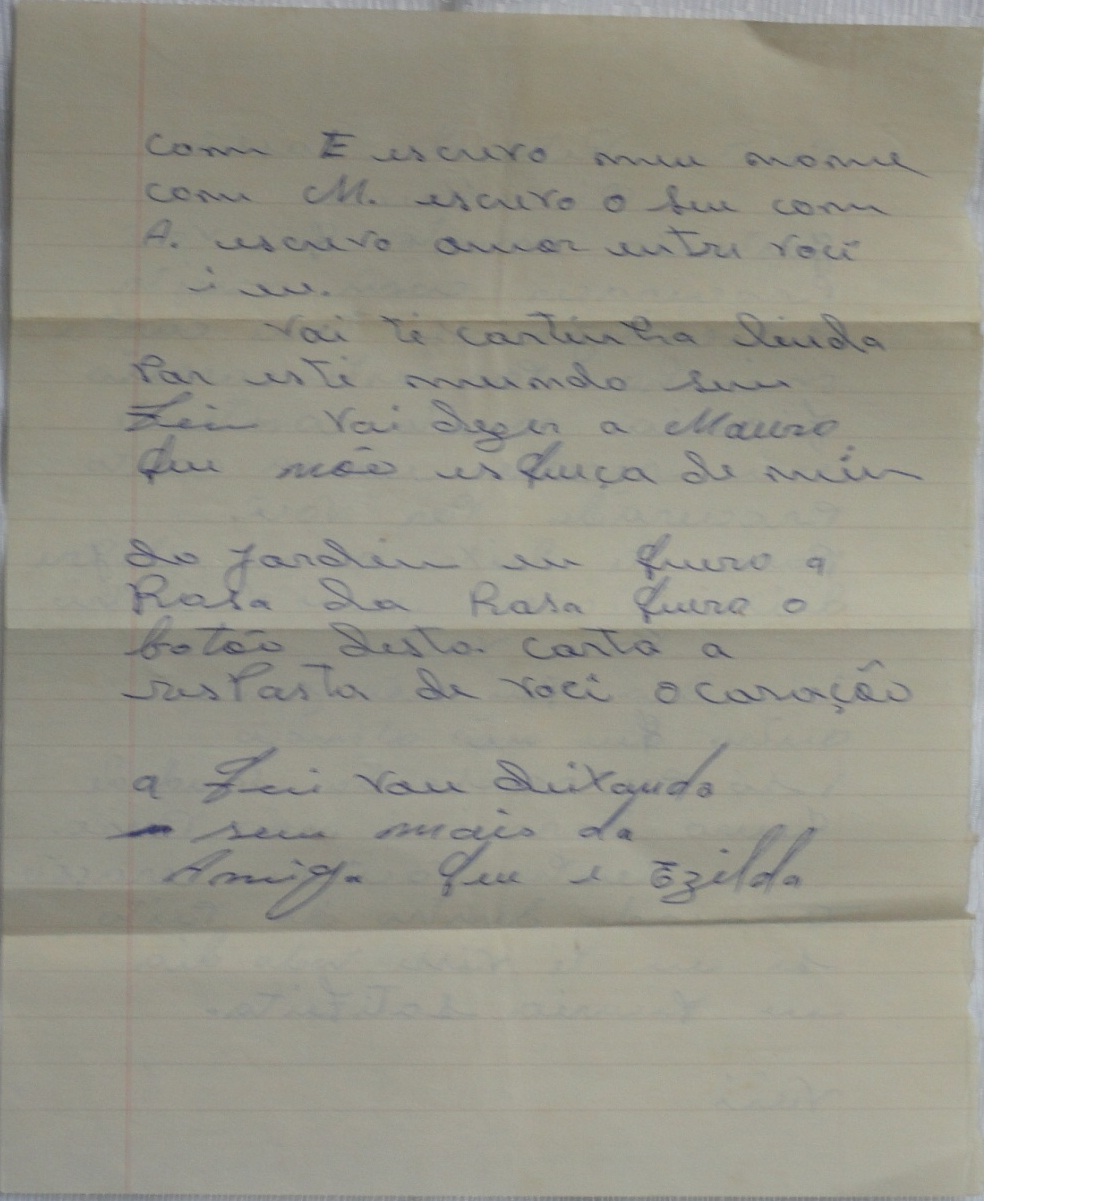 com E escrevo meu nome
com M. escrevo o seu com
A. escrevo amor entre você
i eu.
vai ti cartinha linda
Por esti mundo sem
Fim vai dizer a Mauro
que não esqueça de mim
do jardim eu quero a
Rosa da Rosa quero o
botão desta carta a
resPosta de você o coração
a qui vou deixando
sem mais da
Amiga que e Ezilda